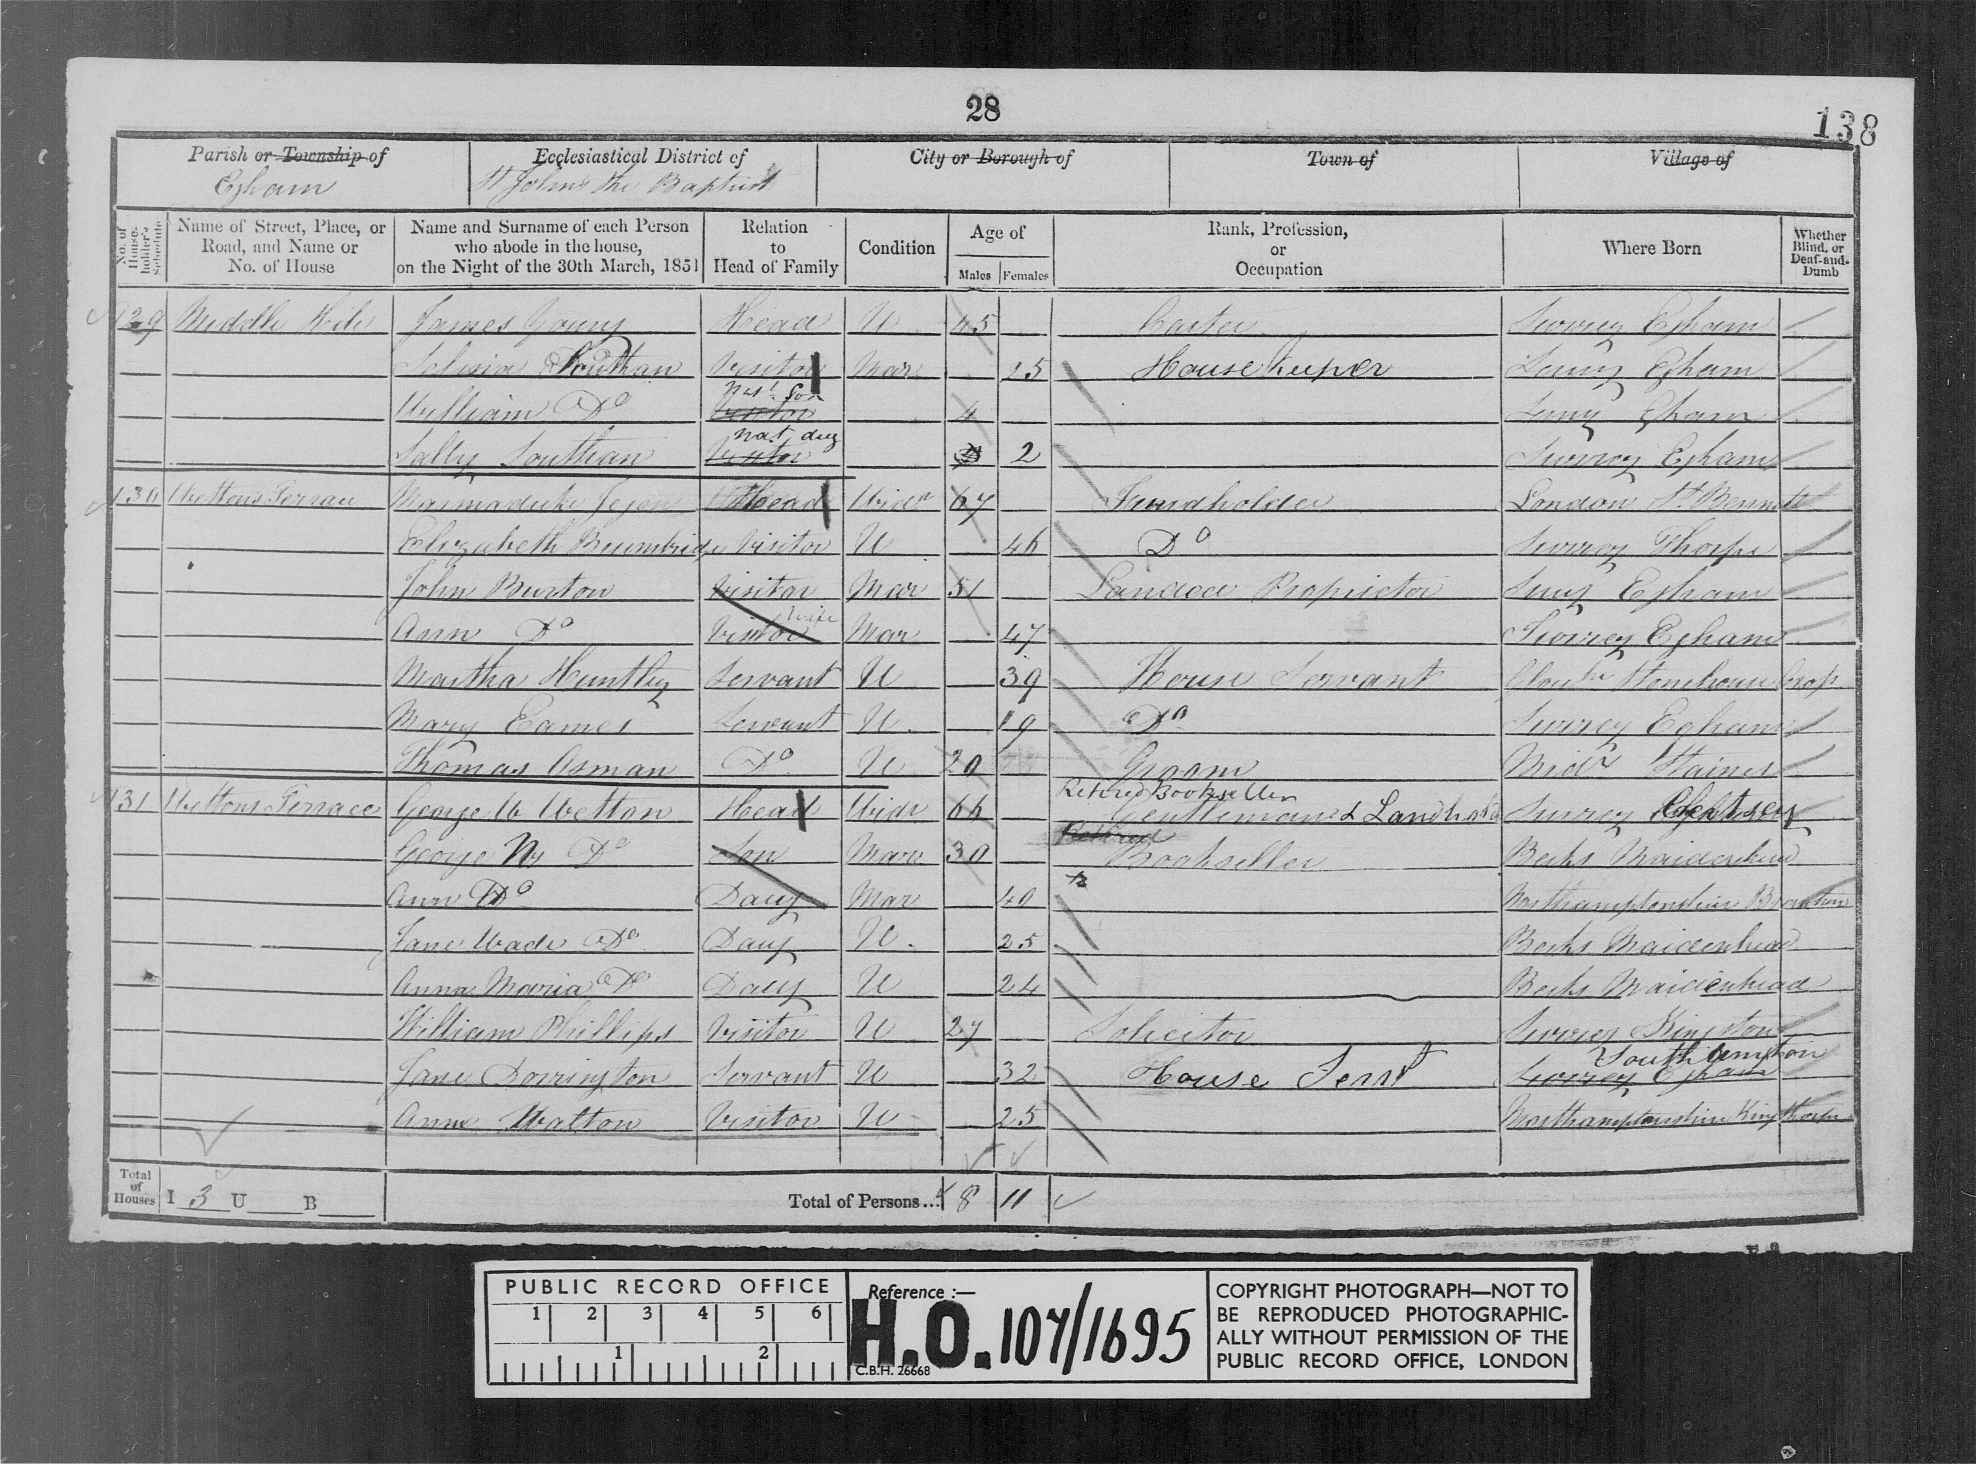 28
138
Parish or Township of
Egham
Ecclesiastical District of
St Johns the Baptist
City or Borough of
Town of
Village of
No. of House-holder's Schedule
Name of Street, Place, or Road, and Name or No. of House
Name and Surname of each Person who abode in the house, on the Night of the 30th March, 1851
Relation to Head of Family
Condition
Age of
Males Females
Rank, Profession, or Occupation
Where Born
Whether Blind, or Deaf-and-Dumb
129 Middle Hill James Young Head U 45 Carter Surrey Egham
Southan Visitor Mar 25 House Keeper Surry Egham
Nat. Son
William Do Visitor 4 Surry Egham
nat. dug
Sally Southan Visitor 2 Surrey Egham
130 Wettons Terrace Marmaduke Head Widr 67 Fundholder London St Bennett
Elizabeth Visitor U 46 Do Surrey Thorpe
John Burton Visitor Mar 51 Landed Proprietor Surry Egham
Wife
Ann Do Visitor Mar 47 Surrey Egham
Martha Huntley Servant U 39 House Servant Stonehouse
Mary Eames Servant U 19 Do Surrey Egham
Thomas Osman Do U 20 Groom Midx Staines
Retired Bookseller
131 Wettons Terrace George W Wetton Head Widr 66 Gentleman & Surrey Chertsey
Retired
George W Do Son Mar 30 Bookseller Berks Maidenhead
Ann Do Daug Mar 40 Northamptonshire
Jane Wade Do Daug U 25 Berks Maidenhead
Anna Maria Do Daug U 24 Berks Maidenhead
William Phillips Visitor U 27 Solicitor Surrey Kingston
Southampton
Jane Dorrington Servant U 32 House Servt Surrey Egham
Ann Walton Visitor U 25 Northamptonshire Kingsthorpe
Total of Houses I 3 U B Total of Persons... 8 11
PUBLIC RECORD OFFICE
1 2 3 4 5 6
1 2
Reference :—
H.O. 107/1695
C.B.H. 26668
COPYRIGHT PHOTOGRAPH—NOT TO
BE REPRODUCED PHOTOGRAPHIC-
ALLY WITHOUT PERMISSION OF THE
PUBLIC RECORD OFFICE, LONDON